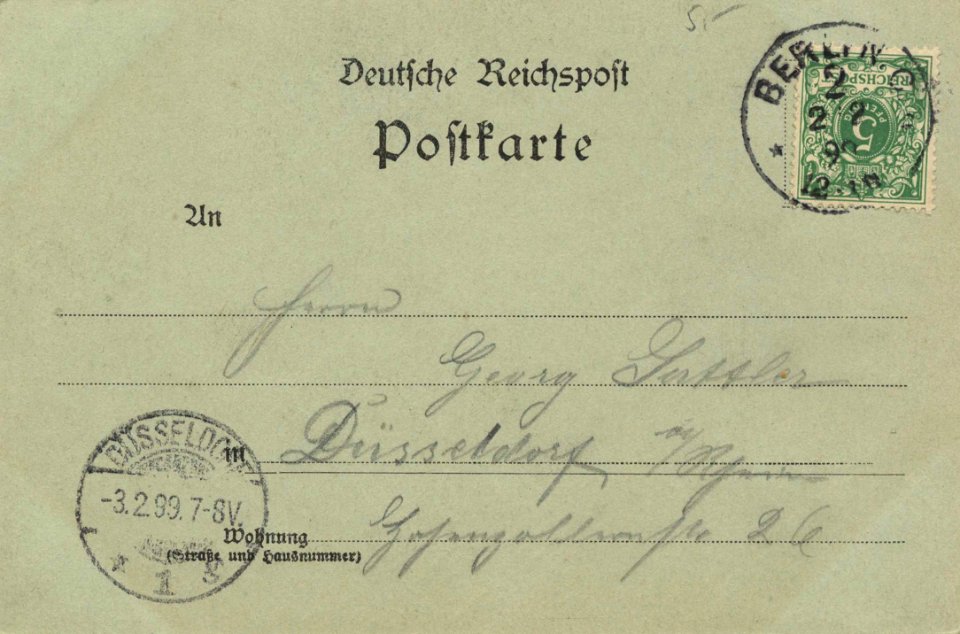 5.-
Deutsche Reichspost
Postkarte
BERLIN C
2
2 2
99
12-1N
REICHSPOST
5
PFENNIG
An
Herrn
Georg Sattler
in Düsseldorf a/Rhein
Wohnung Hohenzollernstr 26
(Straße und Hausnummer)
DÜSSELDORF
-3.2.99.7-8V.
* 1 g